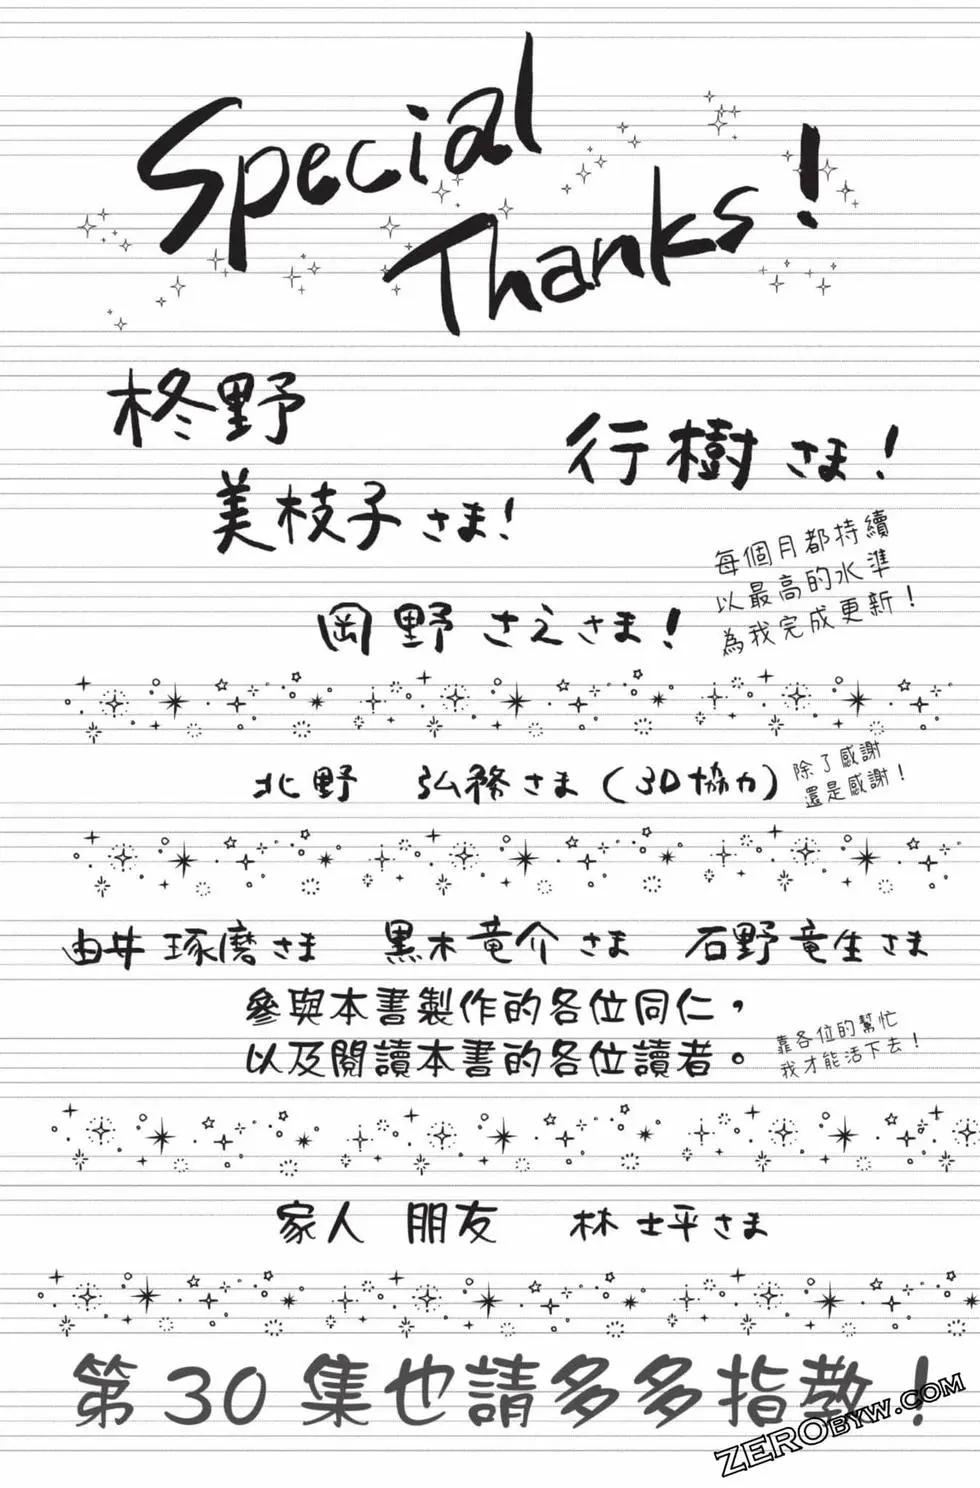 Special
Thanks!
柊野
美枝子さま!
行樹さま!
每個月都持續
以最高的水準
為我完成更新!
岡野さえさま!
北野 弘務さま(3D協力)
除了感謝
還是感謝!
由井琢磨さま 黒木竜介さま 石野竜生さま
參與本書製作的各位同仁,
以及閱讀本書的各位讀者。
靠各位的幫忙
我才能活下去!
家人 朋友 林士平さま
第30集也請多多指教!
ZEROBYW.COM